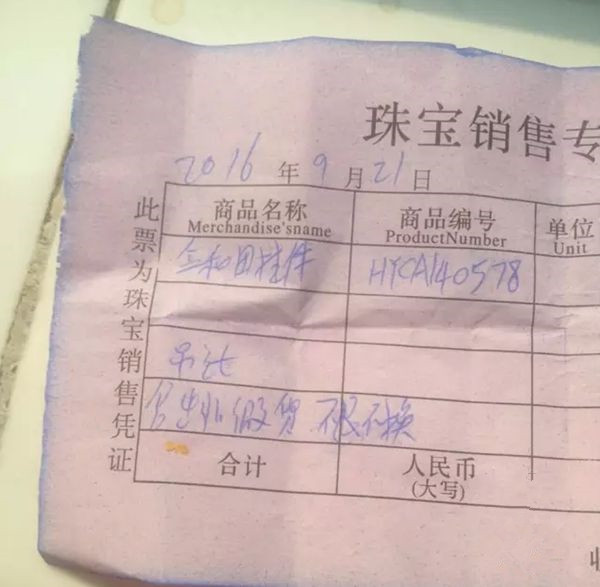 珠宝销售专
2016年9月21日
此票为珠宝销售凭证
商品名称 商品编号 单位
Merchandise'sname ProductNumber Unit
金和田挂件 HYCA140578
吊坠
假货 不退不换
合计 人民币
(大写)